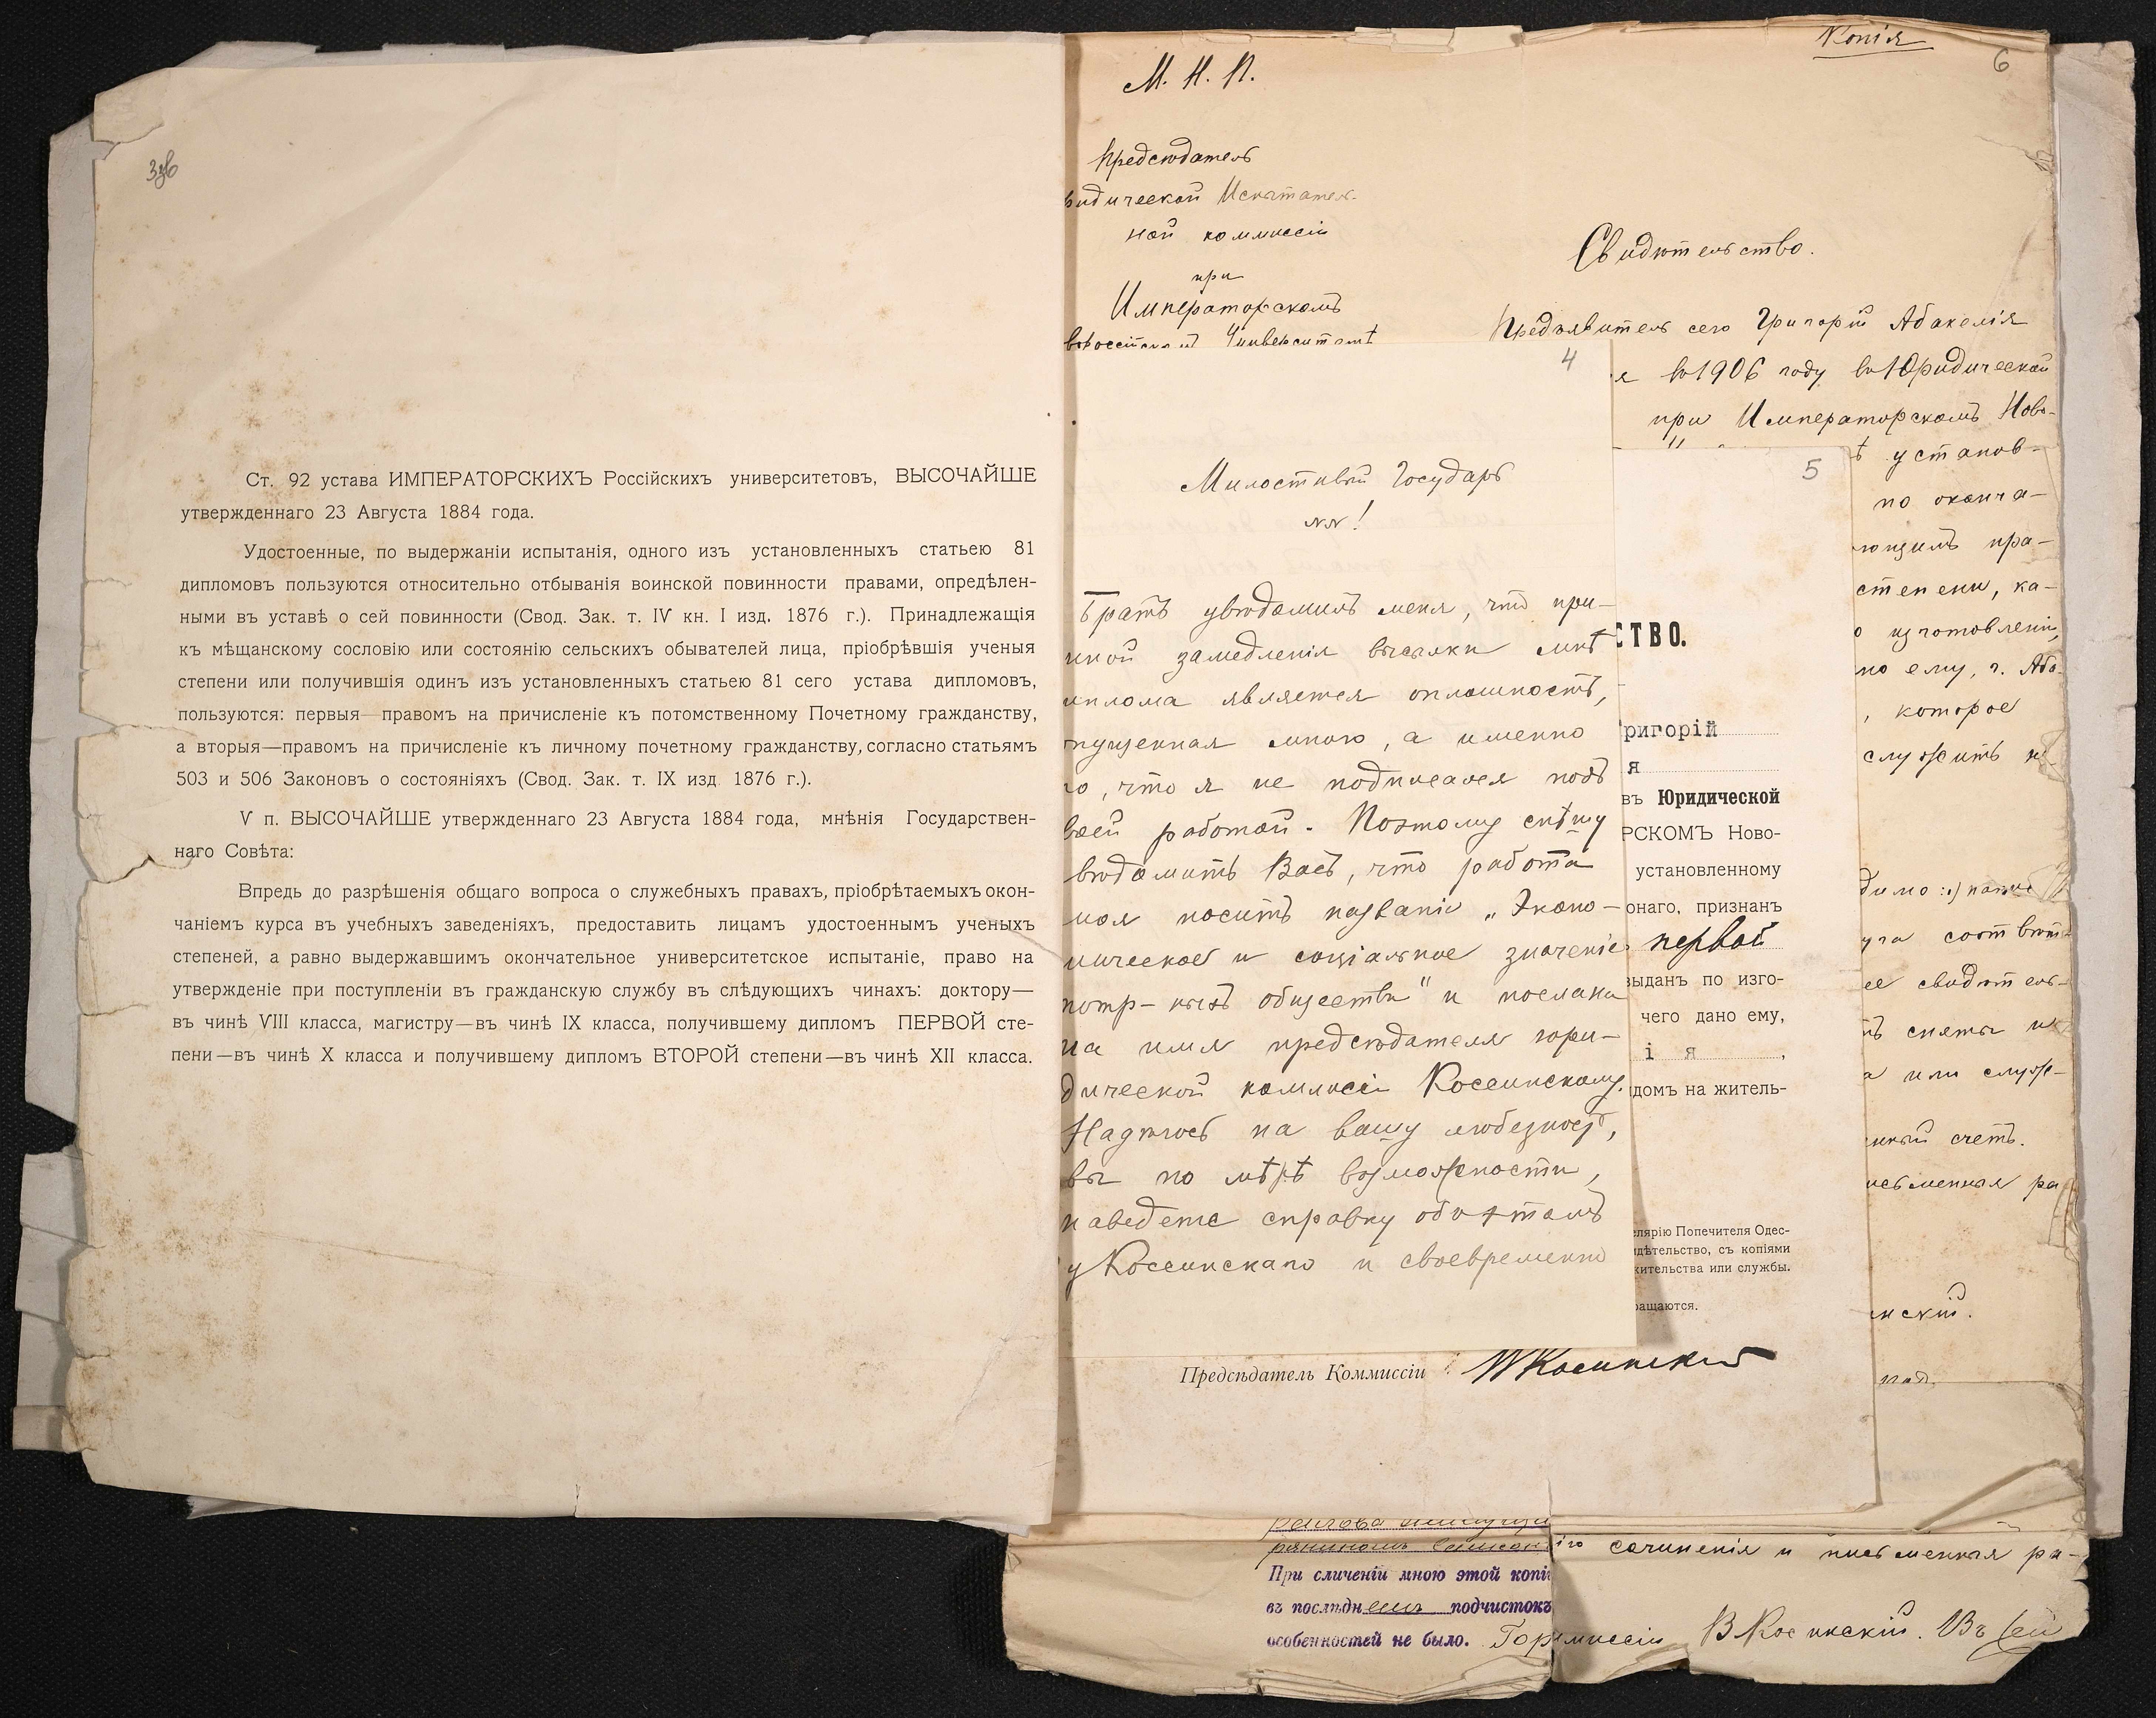 3об
Ст. 92 устава ИМПЕРАТОРСКИХЪ Россійскихъ университетовъ, ВЫСОЧАЙШЕ
утвержденнаго 23 Августа 1884 года.
Удостоенные, по выдержаніи испытанія, одного изъ установленныхъ статьею 81
дипломовъ пользуются относительно отбыванія воинской повинности правами, опредѣлен-
ными въ уставѣ о сей повинности (Свод. Зак. т. IV кн. I изд. 1876 г.). Принадлежащія
къ мѣщанскому сословію или состоянію сельскихъ обывателей лица, пріобрѣвшія ученыя
степени или получившія одинъ изъ установленныхъ статьею 81 сего устава дипломовъ,
пользуются: первыя—правомъ на причисленіе къ потомственному Почетному гражданству,
а вторыя—правомъ на причисленіе къ личному почетному гражданству, согласно статьямъ
503 и 506 Законовъ о состояніяхъ (Свод. Зак. т. IX изд. 1876 г.).
V п. ВЫСОЧАЙШЕ утвержденнаго 23 Августа 1884 года, мнѣнія Государствен-
наго Совѣта:
Впредь до разрѣшенія общаго вопроса о служебныхъ правахъ, пріобрѣтаемыхъ окон-
чаніемъ курса въ учебныхъ заведеніяхъ, предоставить лицамъ удостоеннымъ ученыхъ
степеней, а равно выдержавшимъ окончательное университетское испытаніе, право на
утвержденіе при поступленіи въ гражданскую службу въ слѣдующихъ чинахъ: доктору—
въ чинѣ VIII класса, магистру—въ чинѣ IX класса, получившему дипломъ ПЕРВОЙ сте-
пени—въ чинѣ X класса и получившему дипломъ ВТОРОЙ степени—въ чинѣ XII класса.
Копія
6
М. Н. П.
Предсѣдатель
ридической Испытатель-
ной коммиссіи
при
Императорскомъ
вороссійскомъ Университетѣ
Свидѣтельство.
Предъявитель сего Григорій Абакелія
я въ 1906 году въ Юридической
при Императорскомъ Ново-
ѣ установ-
по оконча-
ющимъ пра-
степени, ка-
о изготовленіи,
но ему, г. Аба-
, которое
служить
соотвѣт
ее свидѣтель-
или служ-
счетъ.
исьменная ра
нскій.
4
Милостивый Государь
NN!
Братъ увѣдомилъ меня, что при-
чиной замедленія высылки мнѣ
иплома является оплошность,
пущенная мною, а именно
то, что я не подписался подъ
своей работой. Поэтому спѣшу
вѣдомить Васъ, что работа
моя носитъ названіе „Эконо-
мическое и соціальное значеніе
потр-ныхъ обществъ" и послана
на имя предсѣдателя юри-
дической комиссіи Коссинскому.
Надѣюсь на вашу любезность,
вы по мѣрѣ возможности,
наведете справку объ этомъ
у Коссинскаго и своевременно
5
СТВО.
Григорій
я
въ Юридической
РСКОМЪ Ново-
установленному
онаго, признанъ
первой
выданъ по изго-
чего дано ему,
і я ,
идомъ на житель-
елярію Попечителя Одес-
идѣтельство, съ копіями
жительства или службы.
ращаются.
Предсѣдатель Коммиссіи ВКосинскій
При сличеніи мною этой копіи
въ послѣднемъ подчистокъ
особенностей не было.
іго сочиненія и письменная ра-
миссіи ВКосинскій. Въ